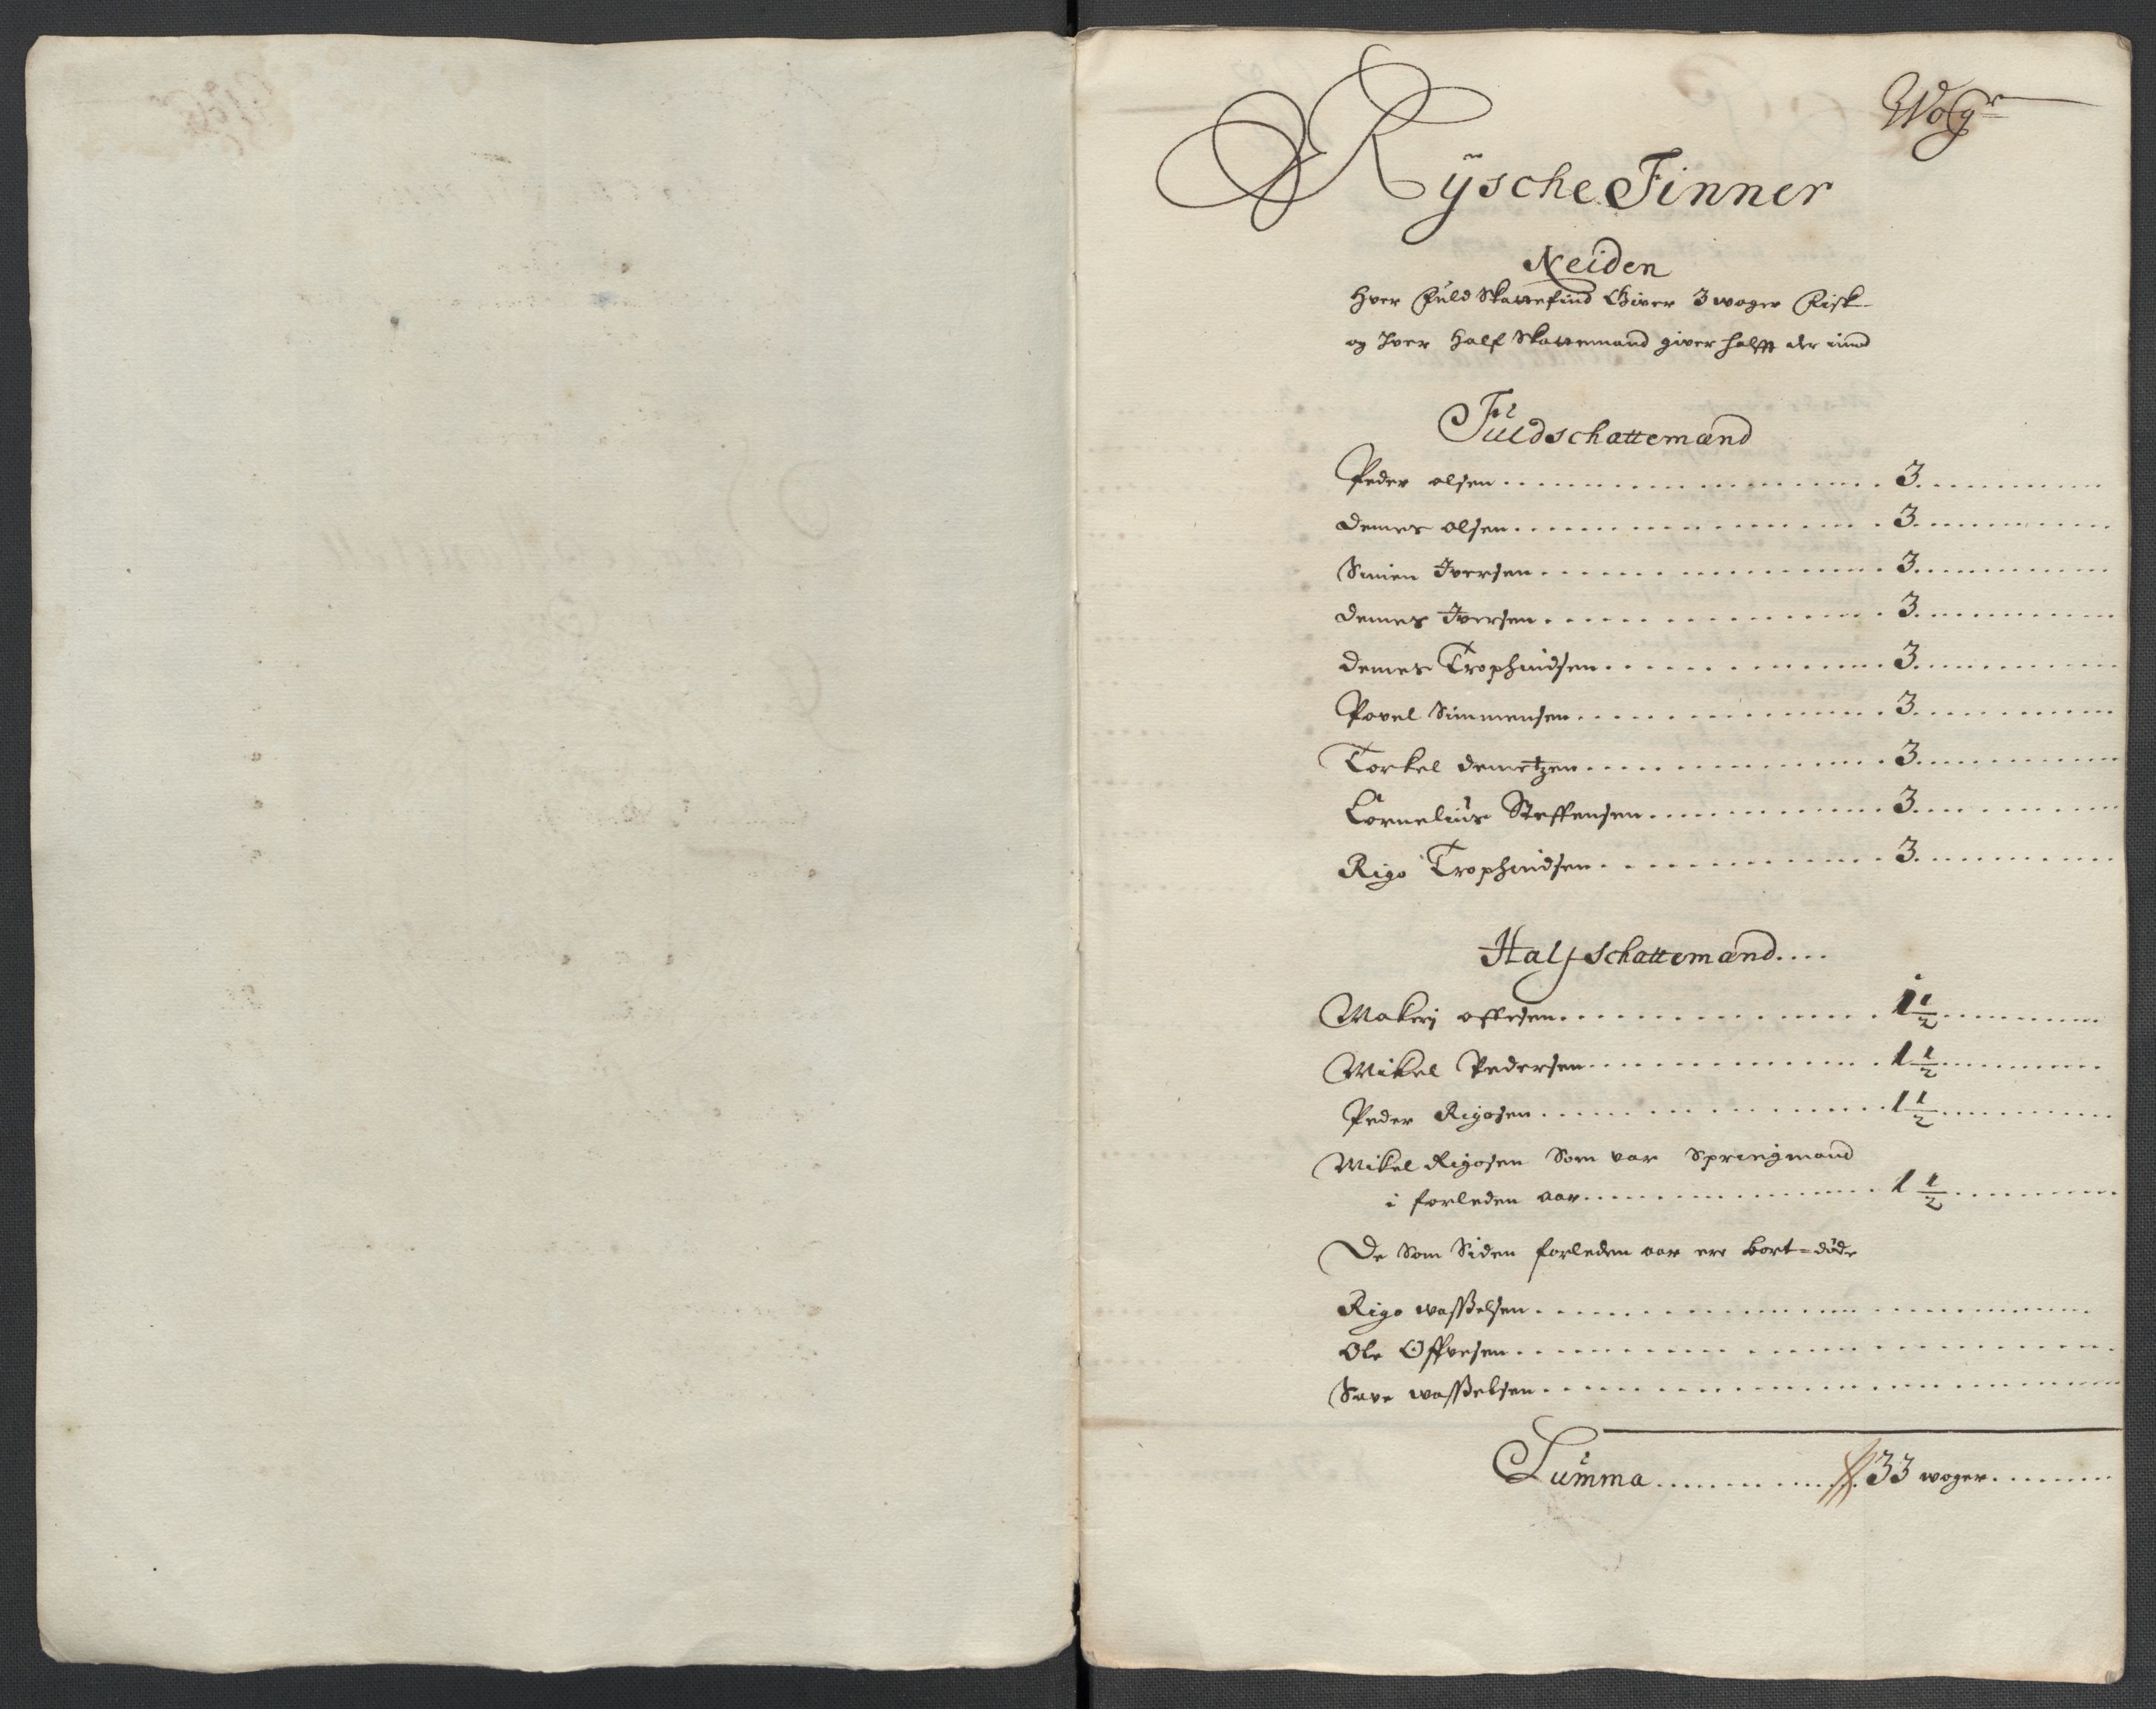 Wogr
Rÿsche Finner
Neiden
Hver Fuld Skattefind Giver 3 woger Fisk
og Hver Half Skattemand giver halfft der imod
Fuldschattemænd
Peder olsen 3
Demes olsen 3
Simen Iversen 3
Demes Iversen 3
Demes Trophindsen 3
Povel Simmensen 3
Torkel Demetzen 3
Cornelius Steffensen 3
Rigo Trophindsen 3
Halfschattemænd
Makerj offesen 1 1/2
Mikel Pedersen 1 1/2
Peder Rigosen 1 1/2
Mikel Rigosen Som var Springmand
i forleden aar 1 1/2
De Som Siden forleden aar ere bort=døde
Rigo wasselsen
Ole Offvesen
Save wasselsen
Summa 33 woger